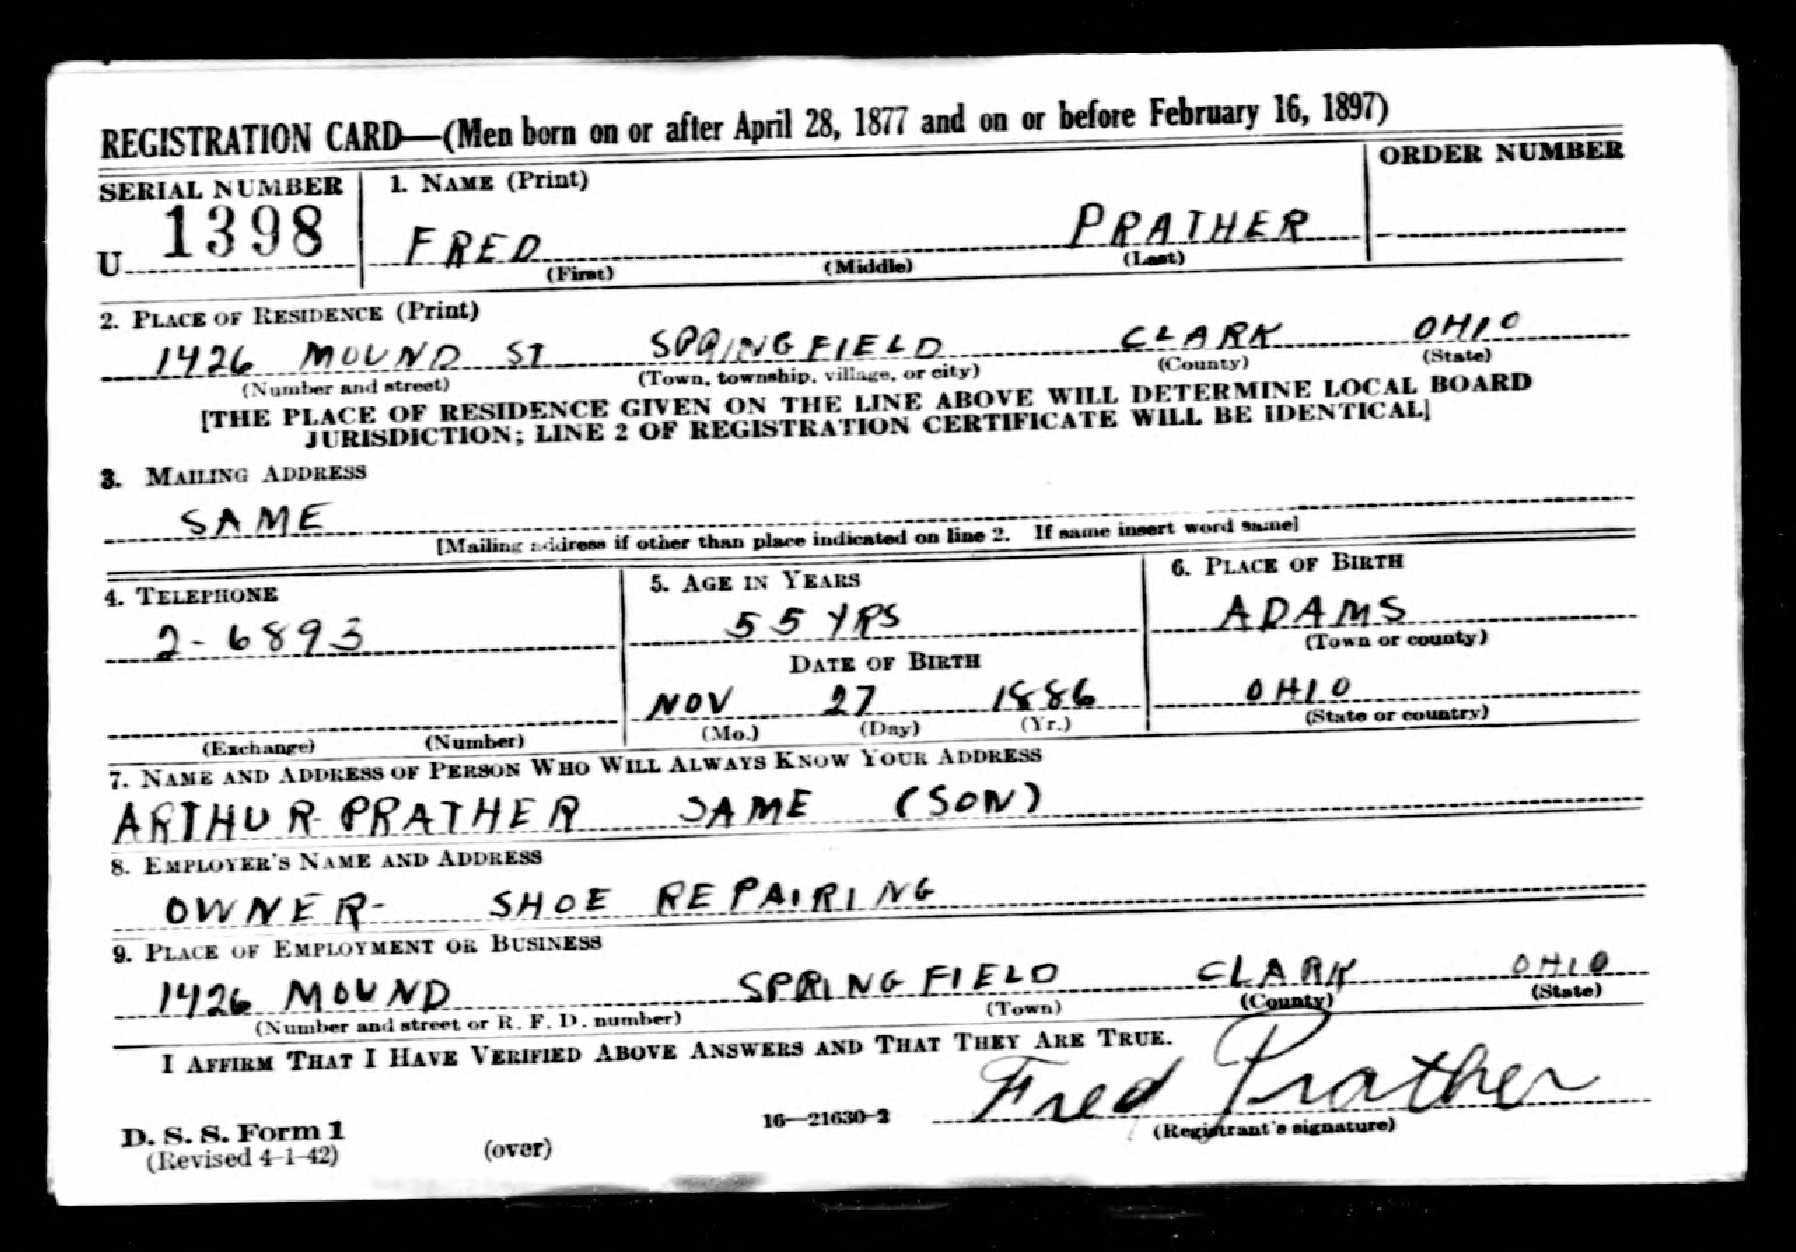 REGISTRATION CARD—(Men born on or after April 28, 1877 and on or before February 16, 1897)
SERIAL NUMBER 1. NAME (Print) ORDER NUMBER
U 1398 FRED PRATHER
(First) (Middle) (Last)
2. PLACE OF RESIDENCE (Print)
1426 MOUND ST SPRINGFIELD CLARK OHIO
(Number and street) (Town, township, village, or city) (County) (State)
[THE PLACE OF RESIDENCE GIVEN ON THE LINE ABOVE WILL DETERMINE LOCAL BOARD
JURISDICTION; LINE 2 OF REGISTRATION CERTIFICATE WILL BE IDENTICAL]
3. MAILING ADDRESS
SAME
[Mailing address if other than place indicated on line 2. If same insert word same]
4. TELEPHONE 5. AGE IN YEARS 6. PLACE OF BIRTH
2-6893 55 YRS ADAMS
(Town or county)
DATE OF BIRTH
NOV 27 1886 OHIO
(Exchange) (Number) (Mo.) (Day) (Yr.) (State or country)
7. NAME AND ADDRESS OF PERSON WHO WILL ALWAYS KNOW YOUR ADDRESS
ARTHUR PRATHER SAME (SON)
8. EMPLOYER'S NAME AND ADDRESS
OWNER- SHOE REPAIRING
9. PLACE OF EMPLOYMENT OR BUSINESS
1426 MOUND SPRINGFIELD CLARK OHIO
(Number and street or R. F. D. number) (Town) (County) (State)
I AFFIRM THAT I HAVE VERIFIED ABOVE ANSWERS AND THAT THEY ARE TRUE.
Fred Prather
D. S. S. Form 1 16—21630-2 (Registrant's signature)
(Revised 4-1-42) (over)